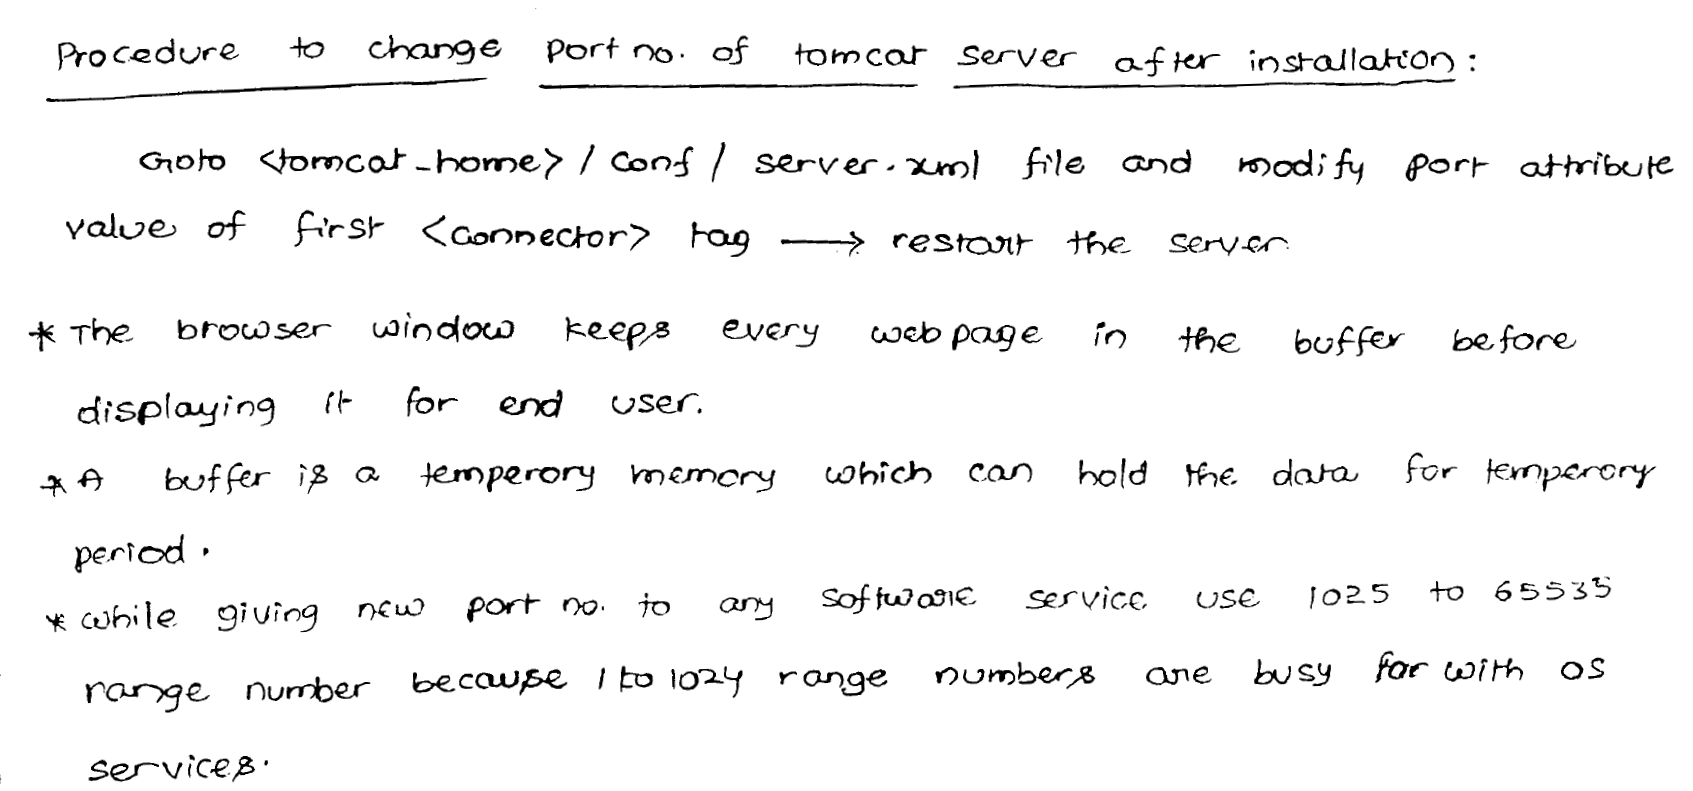 Procedure to change port no. of tomcat server after installation:
Goto <tomcat-home> / conf / server.xml file and modify port attribute
value of first <connector> tag ⟶ restart the server
* The browser window keeps every web page in the buffer before
displaying it for end user.
* A buffer is a temperory memory which can hold the data for temperory
period.
* while giving new port no. to any software service use 1025 to 65535
range number because 1 to 1024 range numbers are busy for with os
services.